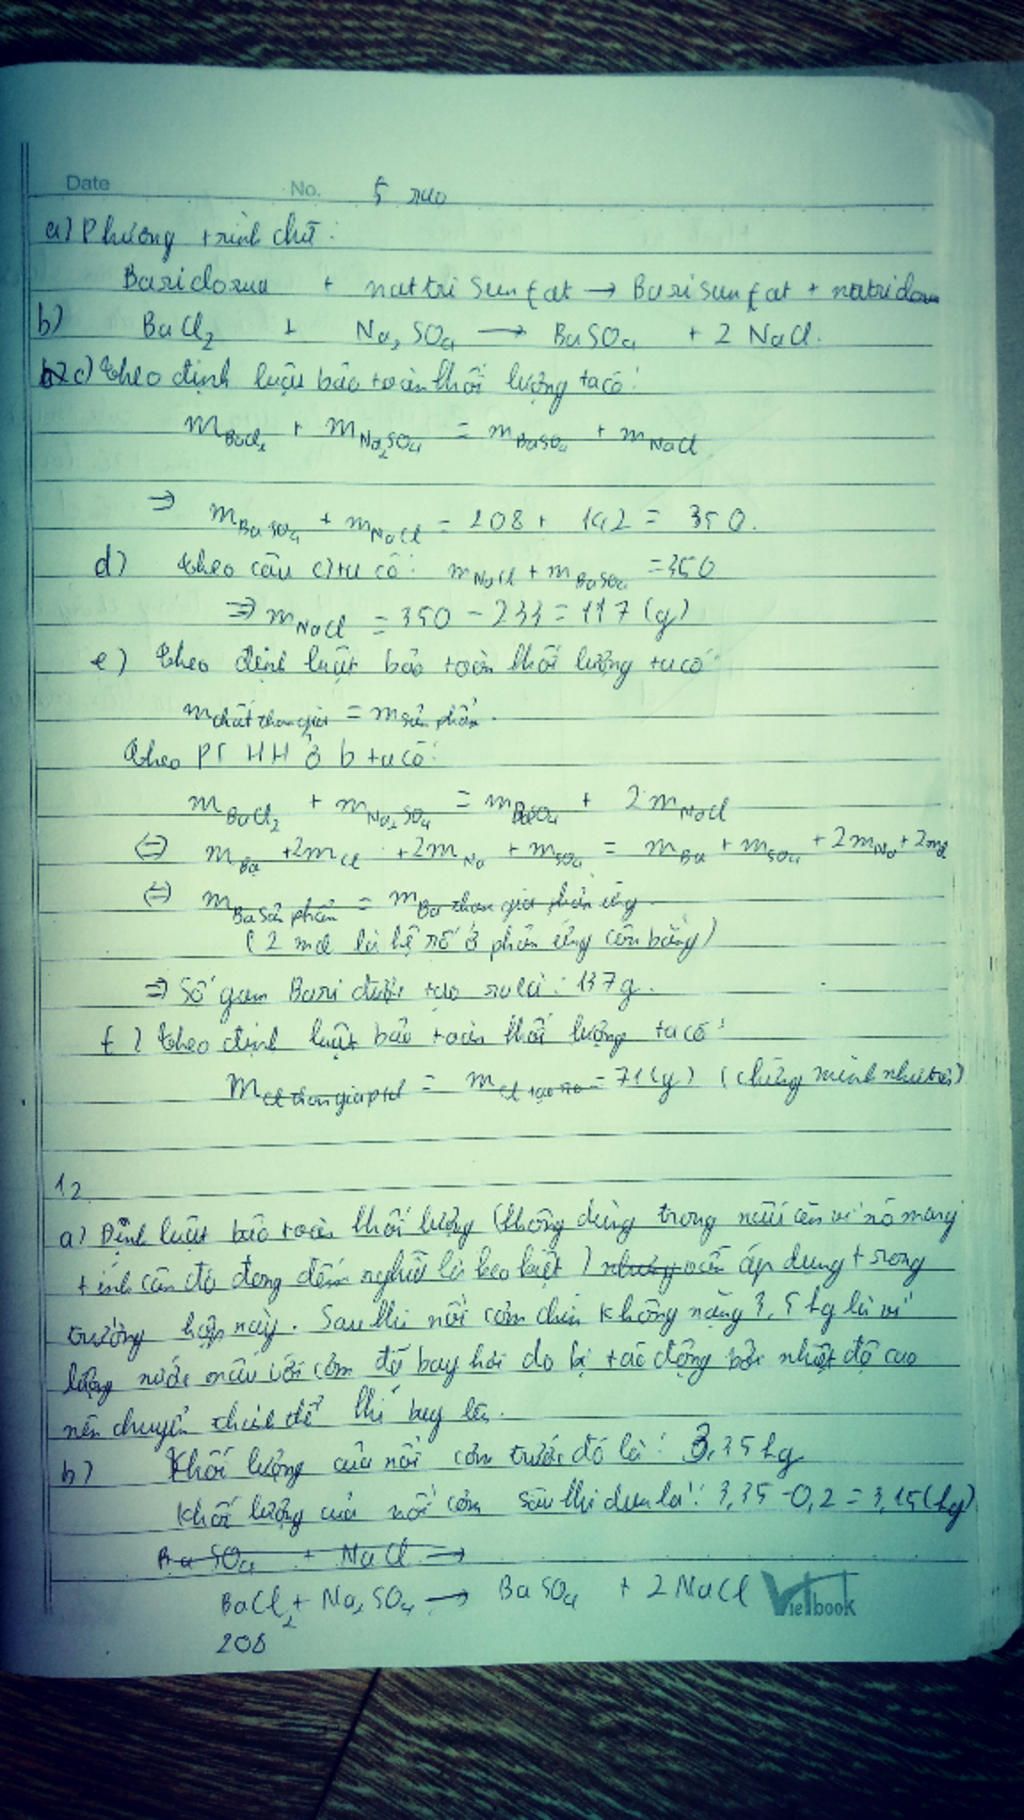 Date No. 5
a) Phương trình chữ:
Bariclorua + nattri sunfat → Bari sunfat + natriclorua
b) BaCl₂ + Na₂SO₄ → BaSO₄ + 2 NaCl.
c) theo định luật bảo toàn khối lượng ta có:
m BaCl₂ + m Na₂SO₄ = m BaSO₄ + m NaCl
⇒ m BaSO₄ + m NaCl = 208 + 142 = 350.
d) theo câu c) ta có: m NaCl + m BaSO₄ = 350
⇒ m NaCl = 350 - 233 = 117 (g)
e) theo định luật bảo toàn khối lượng ta có:
m chất tham gia = m sản phẩm.
theo PTHH ở b ta có:
m BaCl₂ + m Na₂SO₄ = m BaSO₄ + 2 m NaCl
⇔ m Ba + 2m Cl + 2m Na + m SO₄ = m Ba + m SO₄ + 2m Na + 2m Cl
⇔ m Ba sản phẩm = m Ba tham gia phản ứng
(2 m Cl là hệ số ở phản ứng cân bằng)
⇒ Số gam Bari được tạo ra là: 137g.
f) theo định luật bảo toàn khối lượng ta có:
m Cl tham gia = m Cl tạo ra = 71(g) (chứng minh như trên)
12
a) Định luật bảo toàn khối lượng (không dùng trong vì nó mang
tính nghĩa là ) áp dụng trong
trường hợp này. Sau khi nồi cơm chín không nặng 3,5 kg là vì
lượng nước nấu với cơm đã bay hơi do bị tác động bởi nhiệt độ cao
nên chuyển thành thể khí bay lên.
b) Khối lượng của nồi cơm trước đó là: 3,35 kg
Khối lượng của nồi cơm sau khi đun là: 3,35 - 0,2 = 3,15 (kg)
BaSO₄ + NaCl →
BaCl₂ + Na₂SO₄ → BaSO₄ + 2 NaCl Vietbook
208